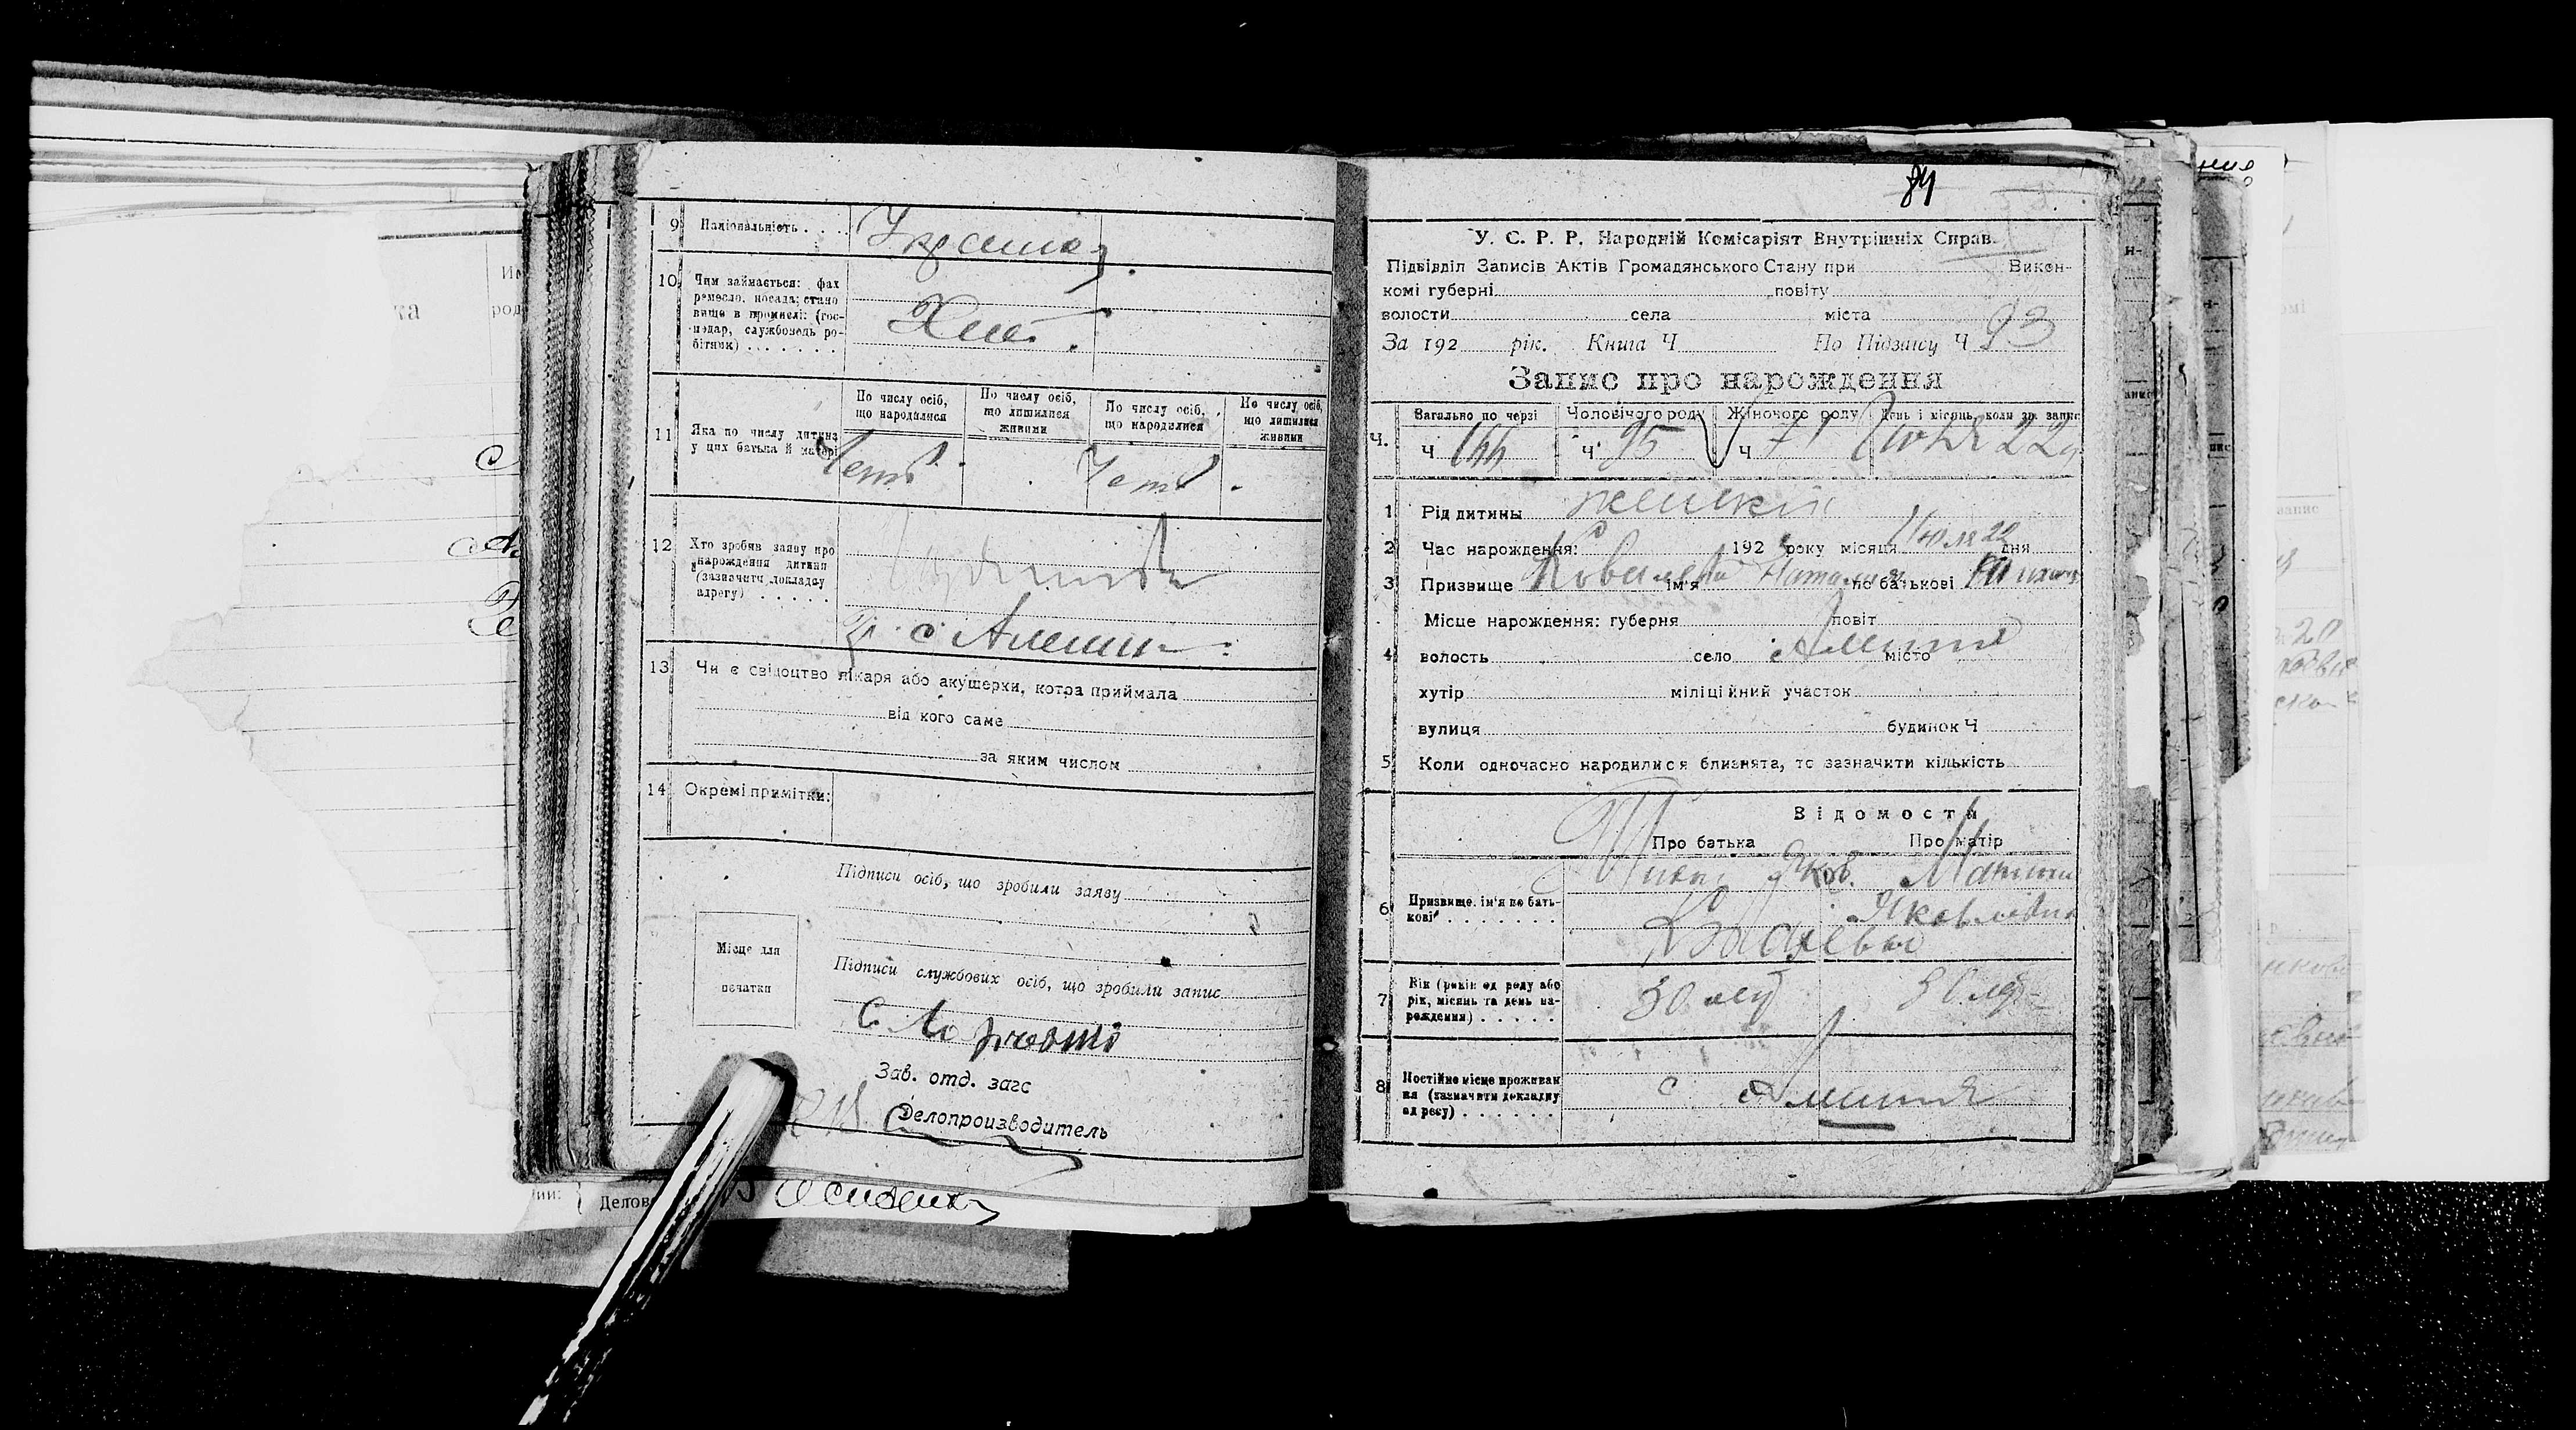 9 Національність . . . Украин
10 Чим займається: фах
ремесло, посада; стано
вище в промислі: (гос-
подар, службовець ро-
бітник) . . . . . . .
Хлеб.
11 Яка по числу дитина
у цих батька й матері
По числу осіб,
що народилися
По числу осіб,
що лишилися
живими
По числу осіб,
що народилися
По числу осіб,
що лишилися
живими
Четв. Четв.
12 Хто зробив заяву про
нарождення дитини
(зазначити докладну
адресу) . . . . .
13 Чи є свідоцтво лікаря або акушерки, котра приймала
від кого саме
за яким числом
14 Окремі примітки:
Підписи осіб, що зробили заяву
Місце для
печатки
Підписи службових осіб, що зробили запис
Зав. отд. загс
Делопроизводитель
Делов
84
У. С. Р. Р. Народній Комісаріят Внутрішніх Справ.
Підвідділ Записів Актів Громадянського Стану при Викон-
комі губерні повіту
волости села міста
За 192 рік. Книга Ч По Підзапису Ч 93
Запис про нарождення
Загально по черзі Чоловічого роду Жіночого роду День і місяць, коли зр. запис
Ч. Ч 166 Ч 95 Ч 71 Июля 22д
1 Рід дитины женский
2 Час нарождення: 192 року місяця Июля 22 дня
3 Призвище Ковалева ім'я Наталия по батькові Тихон
Місце нарождення: губерня повіт
4 волость село місто
хутір міліційний участок
вулиця будинок Ч
5 Коли одночасно народилися близнята, то зазначити кількість
Відомости
Про батька Про матір
6 Призвище, ім'я по бать-
кові . . . . . . .
Тихон Яков.
Яковлевна
Ковалевы
7 Вік (років од роду або
рік, місяць та день на-
рождення) . . . . .
30 лет 30 лет
8 Постійне місце проживан
ня (зазначити докладну
адресу) . . . . . . .
с